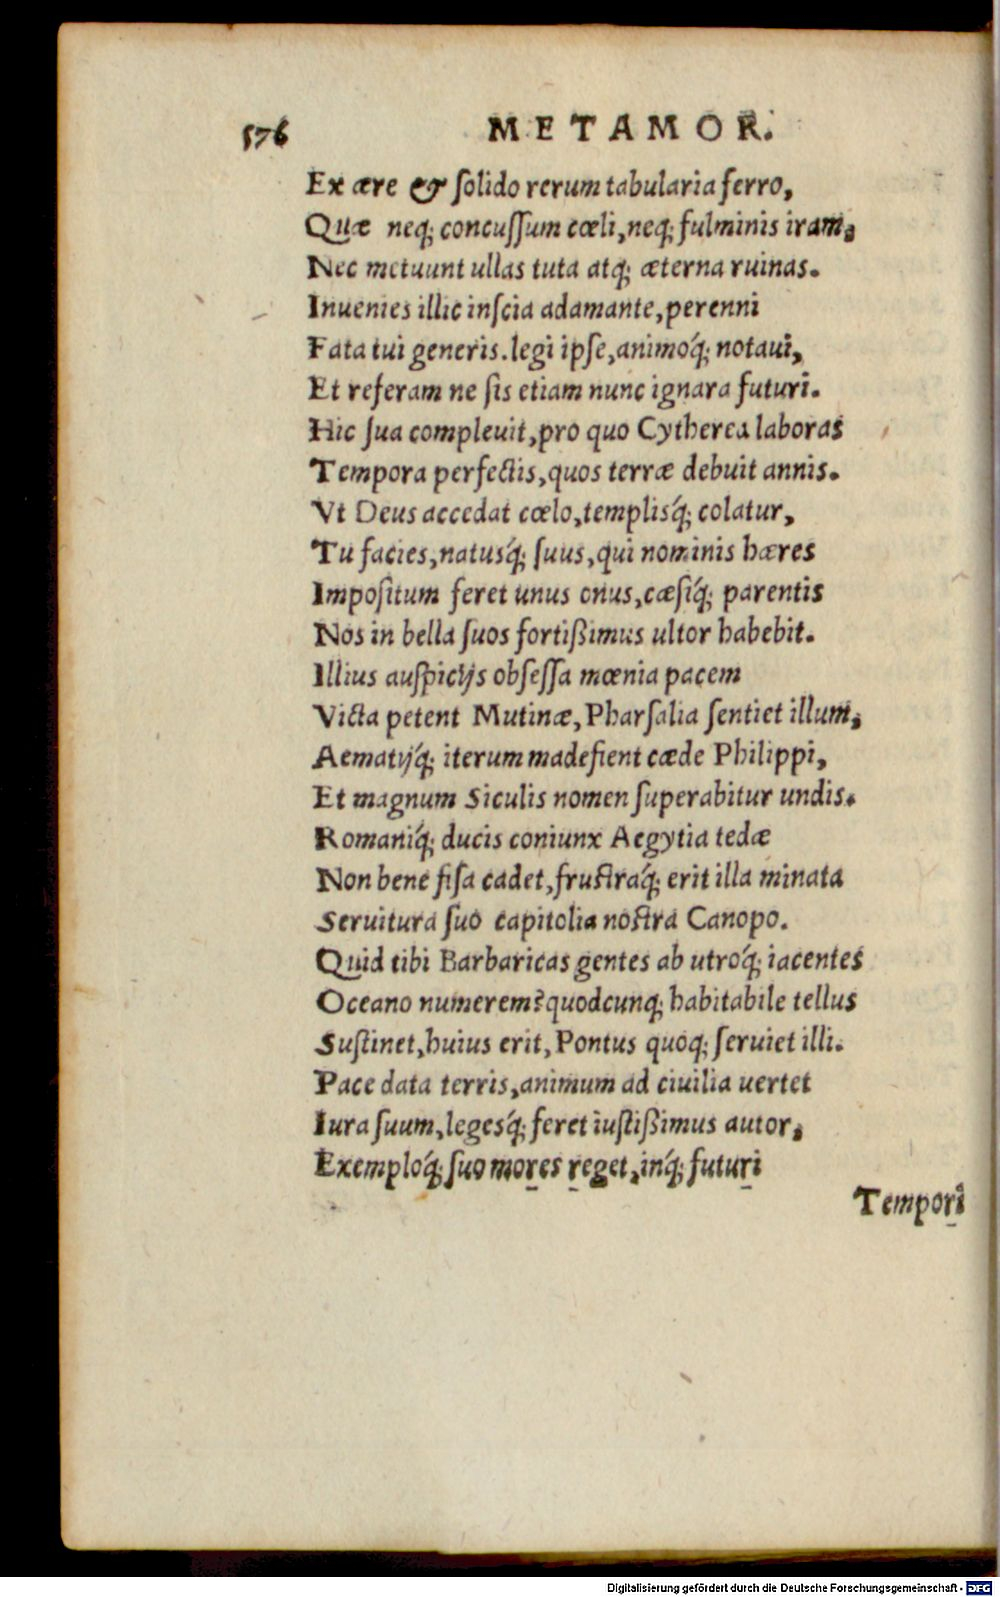 576 METAMOR.
Ex ære & solido rerum tabularia ferro,
Quæ neq; concussum cœli, neq; fulminis iram,
Nec metuunt ullas tuta atq; æterna ruinas.
Inuenies illic inscia adamante, perenni
Fata tui generis. legi ipse, animoq́; notaui,
Et referam ne sis etiam nunc ignara futuri.
Hic sua compleuit, pro quo Cytherea laboras
Tempora perfectis, quos terræ debuit annis.
Vt Deus accedat cœlo, templisq́; colatur,
Tu facies, natusq́; suus, qui nominis hæres
Impositum feret unus onus, cæsiq́; parentis
Nos in bella suos fortißimus ultor habebit.
Illius auspicijs obsessa mœnia pacem
Victa petent Mutinæ, Pharsalia sentiet illum,
Aematijq́; iterum madefient cæde Philippi,
Et magnum Siculis nomen superabitur undis.
Romaniq́; ducis coniunx Aegytia tedæ
Non bene fisa cadet, frustraq́; erit illa minata
Seruitura suo capitolia nostra Canopo.
Quid tibi Barbaricas gentes ab utroq́; iacentes
Oceano numerem? quodcunq; habitabile tellus
Sustinet, huius erit, Pontus quoq; seruiet illi.
Pace data terris, animum ad ciuilia uertet
Iura suum, legesq́; feret iustißimus autor,
Exemploq́; suo mores reget, inq́; futuri
Tempori
Digitalisierung gefördert durch die Deutsche Forschungsgemeinschaft - DFG